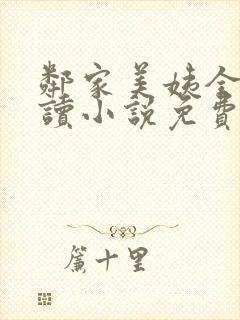 鄰家美姨全
讀小說免費
簾十里